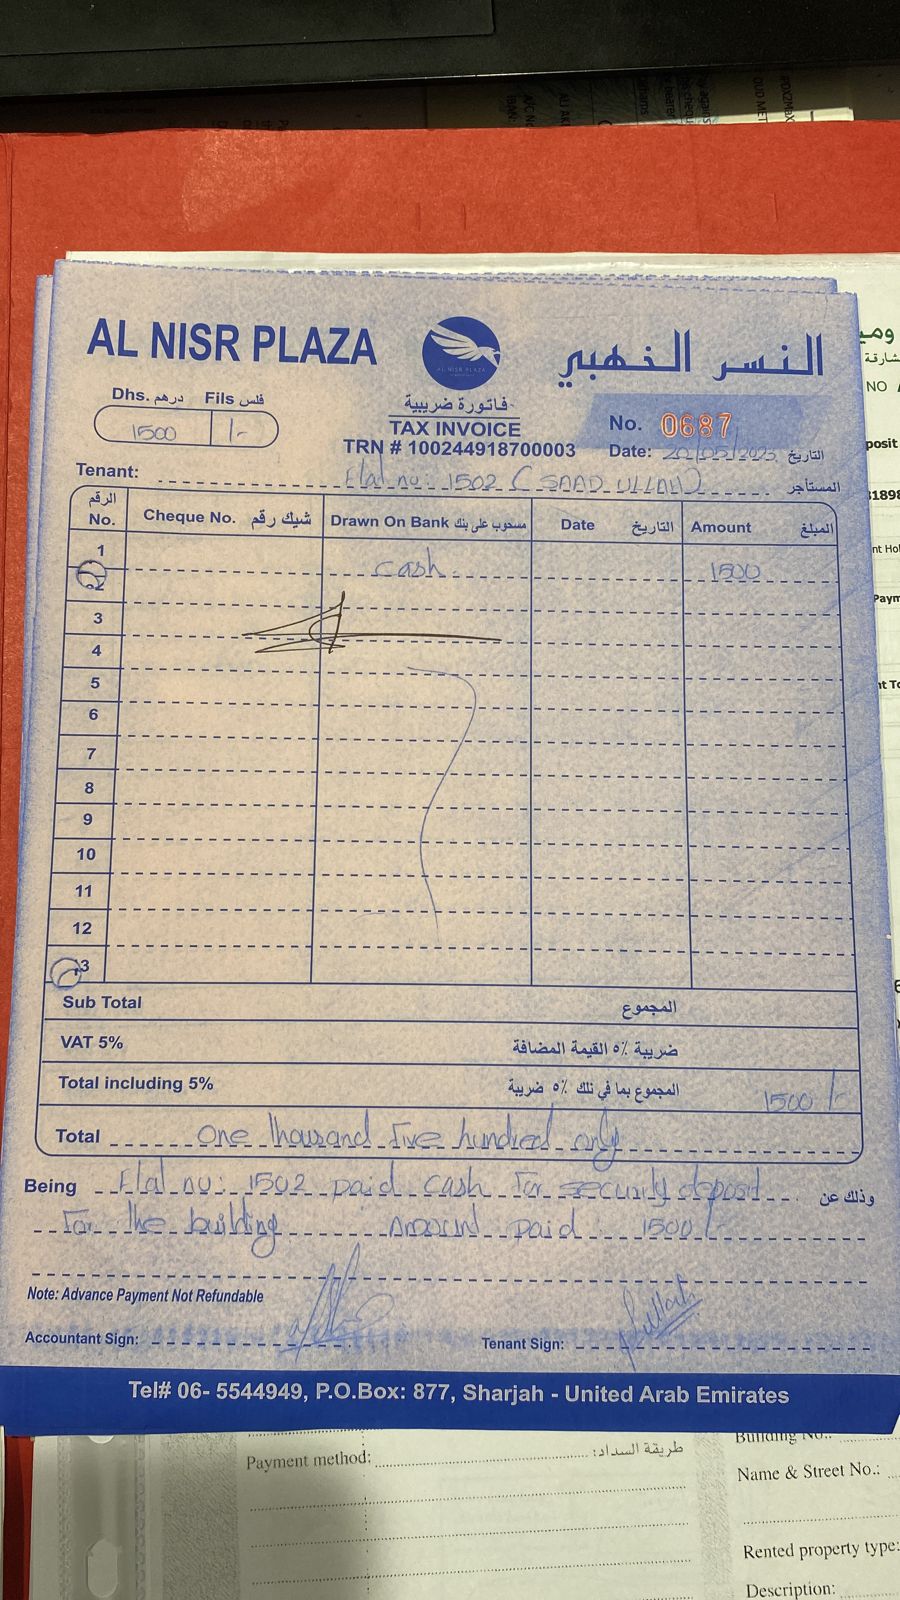 AL NISR PLAZA
النسر الذهبي
Dhs. درهم Fils فلس
1500 /-
فاتورة ضريبية
TAX INVOICE
TRN # 100244918700003
No. 0687
Date: 20/05/2025 التاريخ
Tenant: Flat no: 1502 (SAAD ULLAH) المستأجر
الرقم No. Cheque No. شيك رقم Drawn On Bank مسحوب على بنك Date التاريخ Amount المبلغ
1 cash 1500
2
3
4
5
6
7
8
9
10
11
12
13
Sub Total المجموع
VAT 5% ضريبة ٥٪ القيمة المضافة
Total including 5% المجموع بما في ذلك ٥٪ ضريبة 1500/-
Total One thousand five hundred only
Being Flat no: 1502 paid cash for security deposit وذلك عن
For the building Amount paid 1500/-
Note: Advance Payment Not Refundable
Accountant Sign:
Tenant Sign:
Tel# 06- 5544949, P.O.Box: 877, Sharjah - United Arab Emirates
Payment method: طريقة السداد:
Building No.:
Name & Street No.:
Rented property type:
Description: